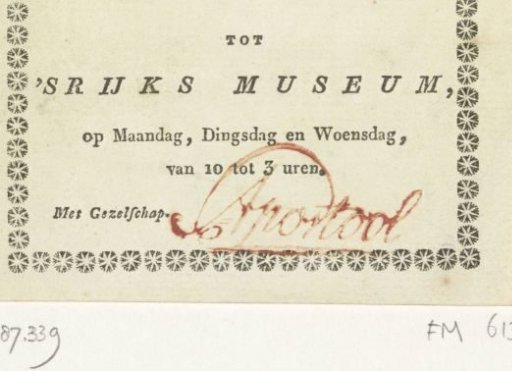 TOT
'SRIJKS MUSEUM,
op Maandag, Dingsdag en Woensdag,
van 10 tot 3 uren.
Met Gezelſchap.
Apostool
87.339
FM 613